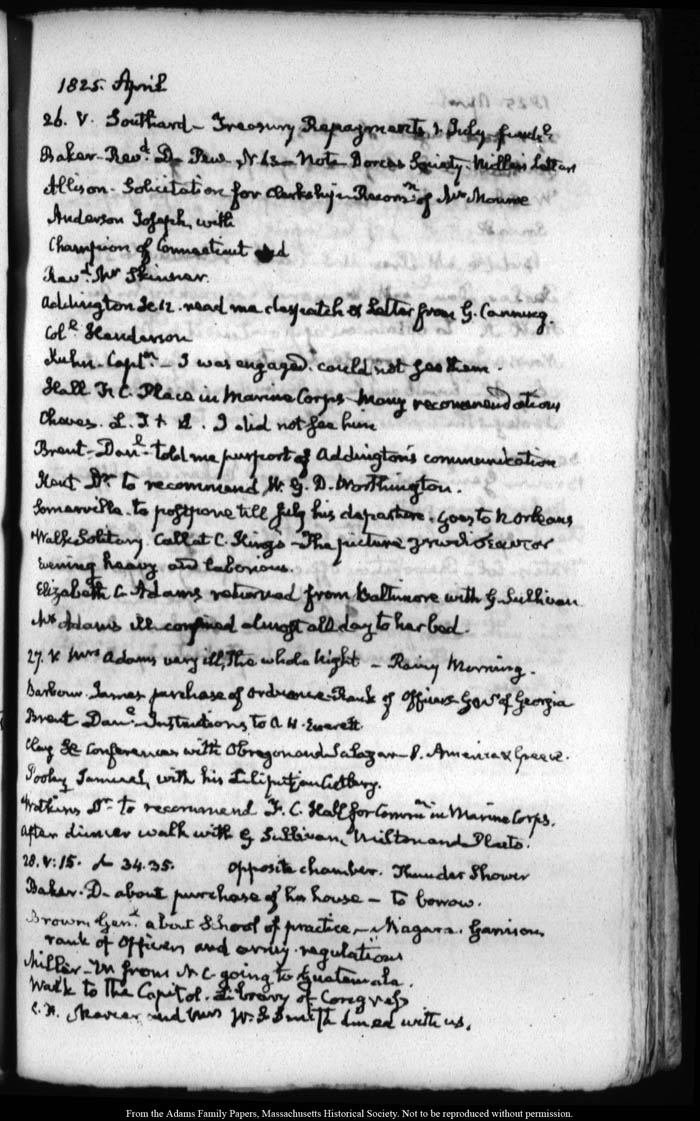 1825. April
26. V. Southard - Treasury Repayments, & July funds
Baker - Revd. D. Pew, N 63 - Note Dorcas Society. Miller's Letter
Allison - Solicitation for clerkship - Recomn. of Mr Monroe
Anderson Joseph, with
Champion of Connecticut
Revd. Mr Skinner.
Addington H. U. read me despatch & Letter from G. Canning.
Coll. Henderson
Kuhn. Captn. - I was engaged. could not see them.
Hall F. C. Place in Marine Corps - Many recommendations
Chaves. L. I did not see him
Brent - Danl. - told me purport of Addington's communication
Kent Dr. to recommend W. G. D. Worthington.
Somerville. to postpone till July his departure. Goes to N Orleans
Walk Solitary. Call at C. King's - The picture
Evening heavy and laborious.
Elizabeth C. Adams returned from Baltimore with G Sullivan
Mrs Adams ill confined almost all day to her bed.
27. V. Mrs Adams very ill, the whole Night - Rainy Morning.
Barbour. James purchase of ordnance - Rank of Officers - Govr. of Georgia
Brent Danl. Instructions to A. H. Everett
Clay H. Conferences with Obregon and Salazar - S. America & Greece.
Pooley Samuel, with his Liliputian Cutlery.
Watkins Dr. to recommend F. C. Hall for Commn. in Marine Corps.
After dinner walk with G Sullivan, Milton and Plato.
28. V:15. 34.35. opposite chamber. Thunder Shower
Baker. D - about purchase of his house - to borrow.
Brown Genl. about School of practice - Niagara. Garrison,
rank of Officers and army regulations
Miller - M from N C going to Guatemala.
Walk to the Capitol. Library of Congress
and Mrs W. S. Smith dined with us.
From the Adams Family Papers, Massachusetts Historical Society. Not to be reproduced without permission.